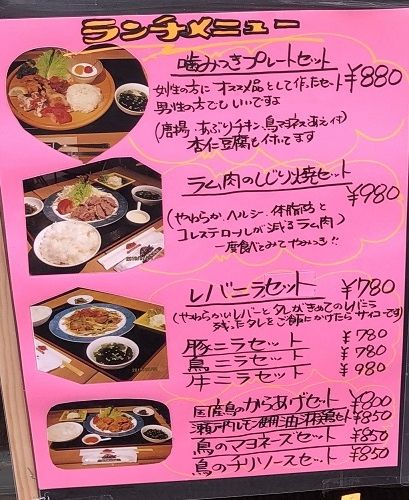 ランチメニュー
噛みつきプレートセット ¥880
女性の方に オススメ品として作ったセット
男性の方でもいいですよ
(唐揚、あぶりチキン、鳥マヨネーズあえ付)
杏仁豆腐も付いてます
ラム肉のしじり焼セット ¥980
(やわらか、ヘルシー、体脂肪と
コレステロールが減るラム肉)
一度食べてみて下さいっ!!
レバニラセット ¥780
(やわらかいレバーとタレがきめてのレバニラ
残ったタレをご飯にかけたらサイコーです)
豚ニラセット ¥780
鳥ニラセット ¥780
牛ニラセット ¥980
国産鳥のからあげセット ¥800
瀬戸内レモン使用 油淋鶏セット ¥850
鳥のマヨネーズセット ¥850
鳥のチリソースセット ¥850